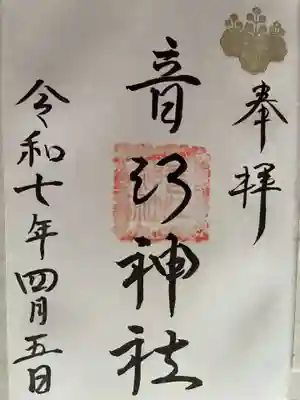 奉拝
音 神社
令和七年四月五日